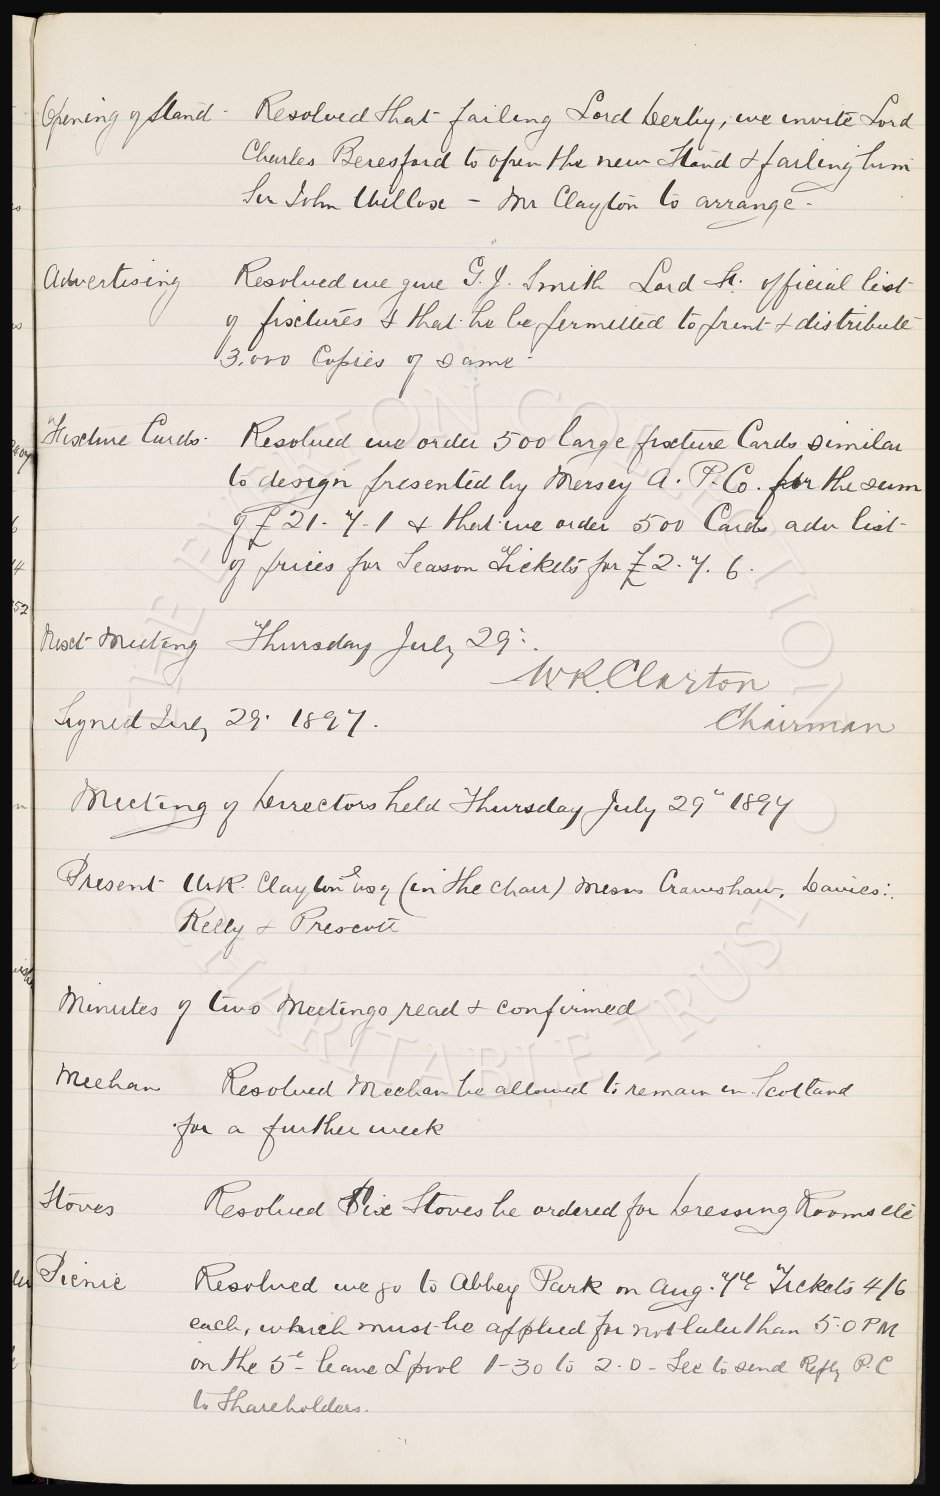 Opening of Stand - Resolved that failing Lord Derby, we invite Lord
Charles Beresford to open the new Stand & failing him
Sir John Willox - Mr Clayton to arrange -
Advertising Resolved we give G. J. Smith Lord St. official list
of fixtures & that he be permitted to print & distribute
3.000 Copies of same -
Fixture Cards. Resolved we order 500 large fixture Cards similar
to design presented by Mersey A. P. Co. for the sum
of £21-7-1 & that we order 500 Cards adv list
of prices for Season Tickets for £2.7.6.
Next Meeting Thursday July 29.
W.R. Clayton
Signed July 29. 1897. Chairman
Meeting of Directors held Thursday July 29" 1897
Present W.R. Clayton Esq (in the chair) Messrs Crawshaw, Davies.
Kelly & Prescott
Minutes of two Meetings read & confirmed
Meehan Resolved Meehan be allowed to remain in Scotland
for a further week
Stoves Resolved Six Stoves be ordered for Dressing Rooms etc
Picnic Resolved we go to Abbey Park on Aug. 7th Tickets 4/6
each, which must be applied for not later than 5.0 PM
on the 5th - leave Lpool 1-30 to 2.0 - Sec to send Reply P.C
to Shareholders.
THE EVERTON COLLECTION
CHARITABLE TRUST